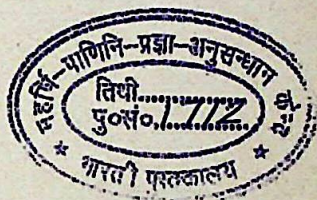 महर्षि-पाणिनि-प्रज्ञा-अनुसन्धान
तिथी..............
पु०सं०.1.7.1.2
* भारती पुस्तकालय *